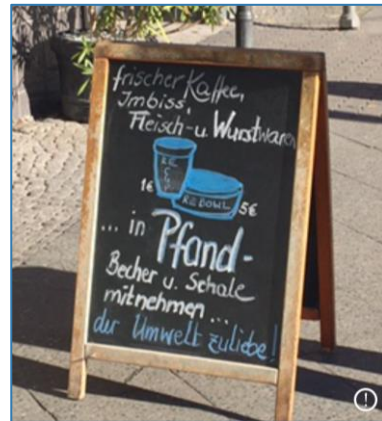 frischer Kaffee,
Imbiss,
Fleisch- u. Wurstwaren
1€
KILL BOWL
5€
... in Pfand-
Becher u. Schale
mitnehmen ...
der Umwelt zuliebe!